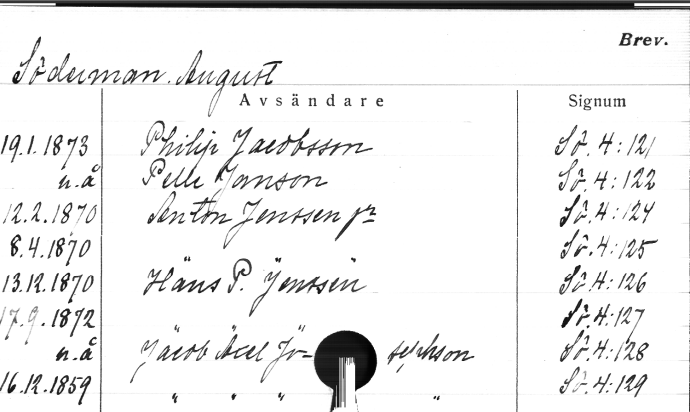 Brev.
Söderman. August
Avsändare Signum
19.1.1873 Philip Jacobsson Sö. 4:121
u.å Pelle Janson Sö. 4:122
12.2.1870 Jenssen jr Sö. 4:124
8.4.1870 Sö. 4:125
13.12.1870 Hans P. Jenssen Sö. 4:126
17.9.1872 Sö. 4:127
u.å Jacob Axel Jo- sephson Sö. 4:128
16.12.1859 " " " " Sö. 4:129